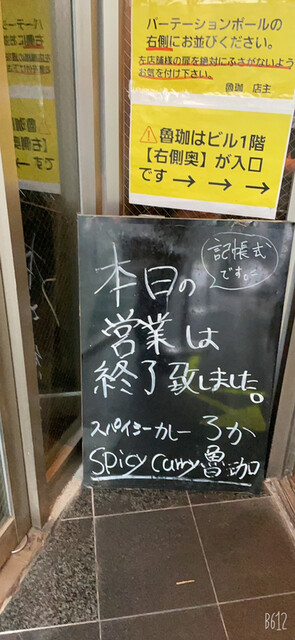 パーテーションポールの
右側にお並びください。
左店舗様の扉を絶対にふさがないよう
お気を付け下さい。
魯珈 店主
⚠魯珈はビル1階
【右側奥】が入口
です→→→
記帳式
です。
本日の
営業は
終了致しました。
スパイシーカレー ろか
Spicy Curry 魯珈
B612